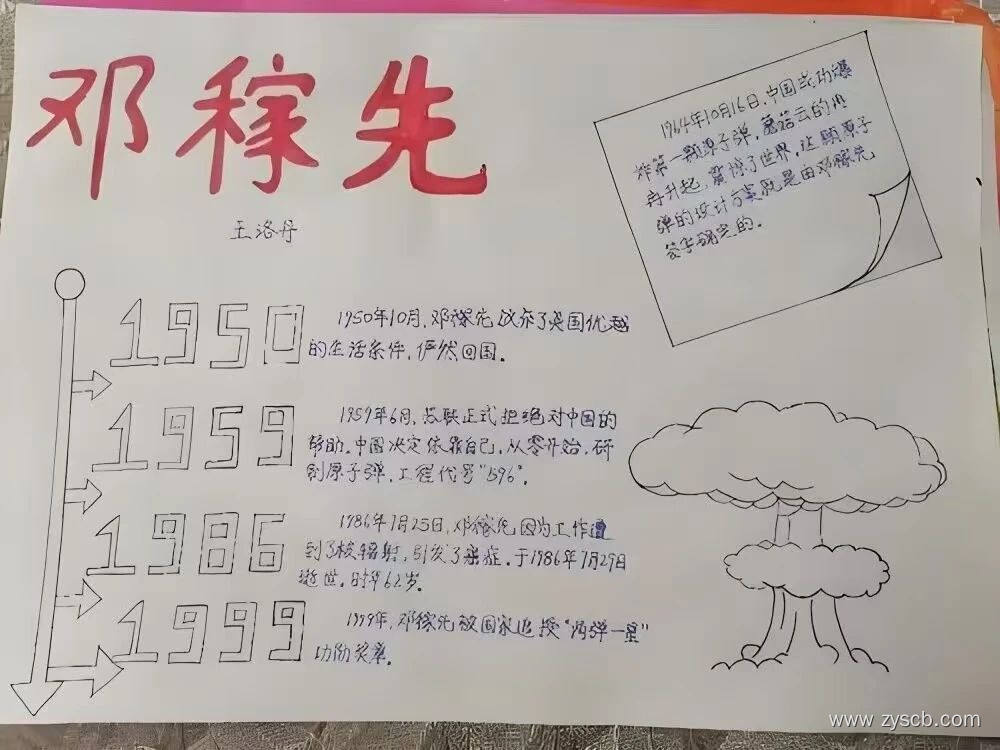 邓稼先
王洛丹
1964年10月16日,中国成功爆
炸第一颗原子弹,蘑菇云的冉
冉升起,震惊了世界,这颗原子
弹的设计方案就是由邓稼先
签字确定的。
1950
1950年10月,邓稼先放弃了美国优越
的生活条件,俨然回国。
1959
1959年6月,苏联正式拒绝对中国的
帮助。中国决定依靠自己,从零开始,研
制原子弹,工程代号"596"。
1986
1986年7月25日,邓稼先因为工作遭
到了核辐射,引发了癌症。于1986年7月29日
逝世。时年62岁。
1999
1999年,邓稼先被国家追授"两弹一星"
功勋奖章。
www.zyscb.com